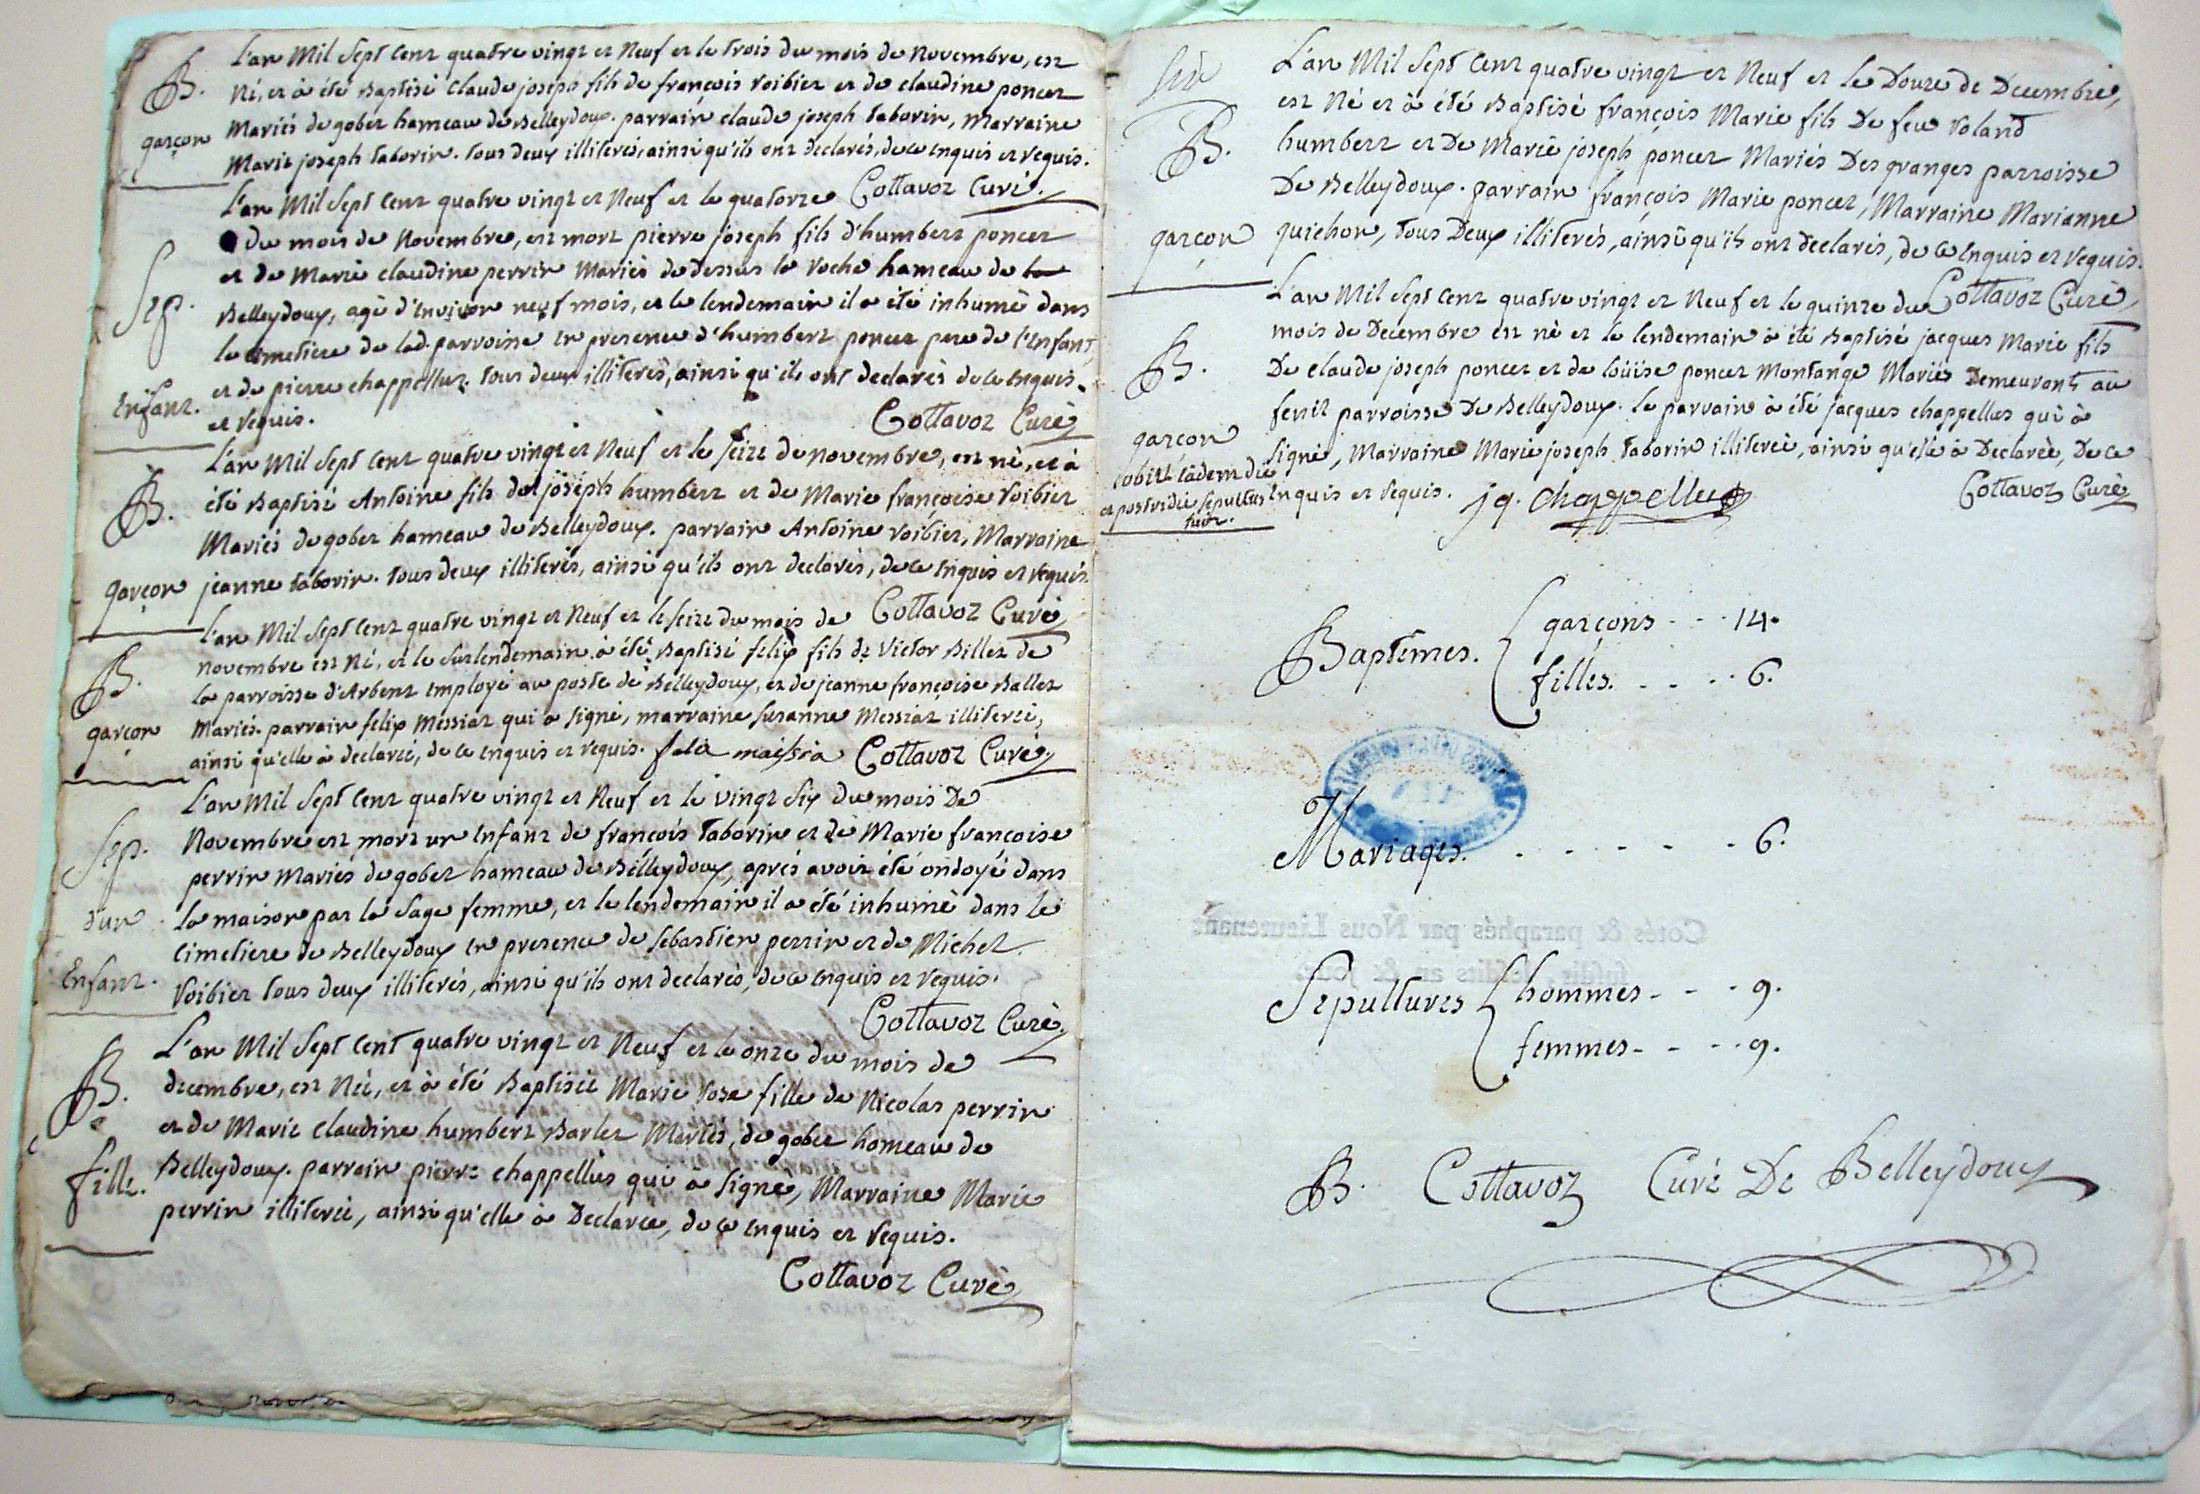 B.
garçon
L'an Mil Sept Cent quatre vingt et Neuf et le trois du mois de Novembre, est
Né, et à été Baptisé Claude joseph fils de françois Voibier et de claudine poncet
Mariés de gobet hameau de Belleydoux. parrain claude joseph taborin, Marraine
Marie joseph taborin. tous deux illiterés, ainsi qu'ils ont declarés, de ce enquis et requis.
Cottavoz Curé.
Sep.
Enfant.
L'an Mil Sept Cent quatre vingt et Neuf et le quatorze
du mois de Novembre, est mort pierre joseph fils d'humbert poncet
et de Marie claudine perrin Mariés de dessus la roche hameau de
Belleydoux, agé d'environ neuf mois, et le lendemain il a été inhumé dans
le cimetiere de lad. parroisse en presence d'humbert poncet pere de l'Enfant,
et de pierre chappelluz. tous deux illiterés, ainsi qu'ils ont declarés de ce enquis
et requis.
Cottavoz Curé
B.
garçon
L'an Mil Sept Cent quatre vingt et Neuf et le seize de novembre, est né, et à
été Baptisé Antoine fils de joseph humbert et de Marie françoise Voibier
Mariés de gobet hameau de Belleydoux. parrain Antoine Voibier, Marraine
jeanne taborin. tous deux illiterés, ainsi qu'ils ont declarés, de ce enquis et requis.
Cottavoz Curé
B.
garçon
L'an Mil Sept Cent quatre vingt et Neuf et le seize du mois de
novembre est Né, et le surlendemain à été Baptisé felix fils de Victor Billet de
la parroisse d'Arbent employé au poste de Belleydoux, et de jeanne françoise Ballet
Mariés. parrain felix Messiat qui a signé, marraine susanne Messiat illiterée,
ainsi qu'elle à declaré, de ce enquis et requis. felix maissia Cottavoz Curé
Sep.
d'un
Enfant.
L'an Mil Sept Cent quatre vingt et Neuf et le vingt six du mois De
Novembre est mort un Enfant de françois taborin et de Marie françoise
perrin Mariés de gobet hameau de Belleydoux, aprés avoir été ondoyé dans
la maison par la sage femme, et le lendemain il a été inhumé dans le
cimetiere de Belleydoux en presence de sebastien perrin et de Michel
Voibier tous deux illiterés, ainsi qu'ils ont declarés, de ce enquis et requis.
Cottavoz Curé
B.
fille.
L'an Mil Sept Cent quatre vingt et Neuf et le onze du mois de
decembre, est Née, et à été Baptisée Marie rose fille de Nicolas perrin
et de Marie Claudine humbert Barlet Mariés, de gobet hameau de
Belleydoux. parrain pierre chappellus qui à signé, Marraine Marie
perrin illiterée, ainsi qu'elle à Declarée, de ce enquis et requis.
Cottavoz Curé
B.
garçon
L'an Mil Sept Cent quatre vingt et Neuf et le Douze de Decembre,
est Né et à été Baptisé françois Marie fils De feu roland
humbert et De Marie joseph poncet Mariés Des granges parroisse
De Belleydoux. parrain françois Marie poncet, Marraine Marianne
quichon, tous Deux illiterés, ainsi qu'ils ont declarés, de ce enquis et requis.
Cottavoz Curé
B.
garçon
obiit eadem die
et postridie sepultus
fuit.
L'an Mil Sept Cent quatre vingt et Neuf et le quinze du
mois de Decembre est né et le lendemain à été Baptisé jacques Marie fils
De claude joseph poncet et de loüise poncet Montange Mariés Demeurant au
fenit parroisse De Belleydoux. le parrain à été jacques chappellus qui à
signé, Marraine Marie joseph taborin illiterée, ainsi qu'elle à Declarée, De ce
enquis et requis. jq. Chappelluz
Cottavoz Curé
Baptêmes. garçons - - - 14.
filles. - - - - 6.
Mariages. - - - - - - 6.
Cotés & paraphés par Nous Lieutenant
Sepultures hommes - - - 9.
femmes - - - - 9.
B. Cottavoz Curé De Belleydoux